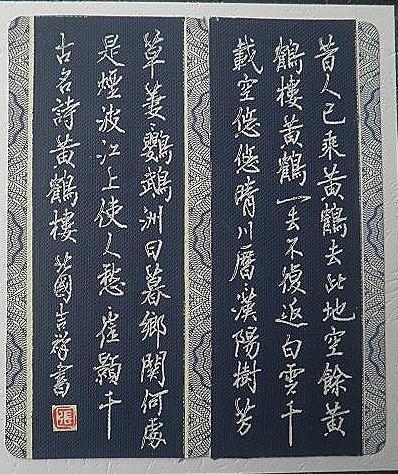 昔人已乘黃鶴去此地空餘黃
鶴樓黃鶴一去不復返白雲千
載空悠悠晴川曆漢陽樹芳
草萋鸚鵡洲日暮鄉關何處
是煙波江上使人愁崔顥千
古名詩黃鶴樓 北國吉祥書
張